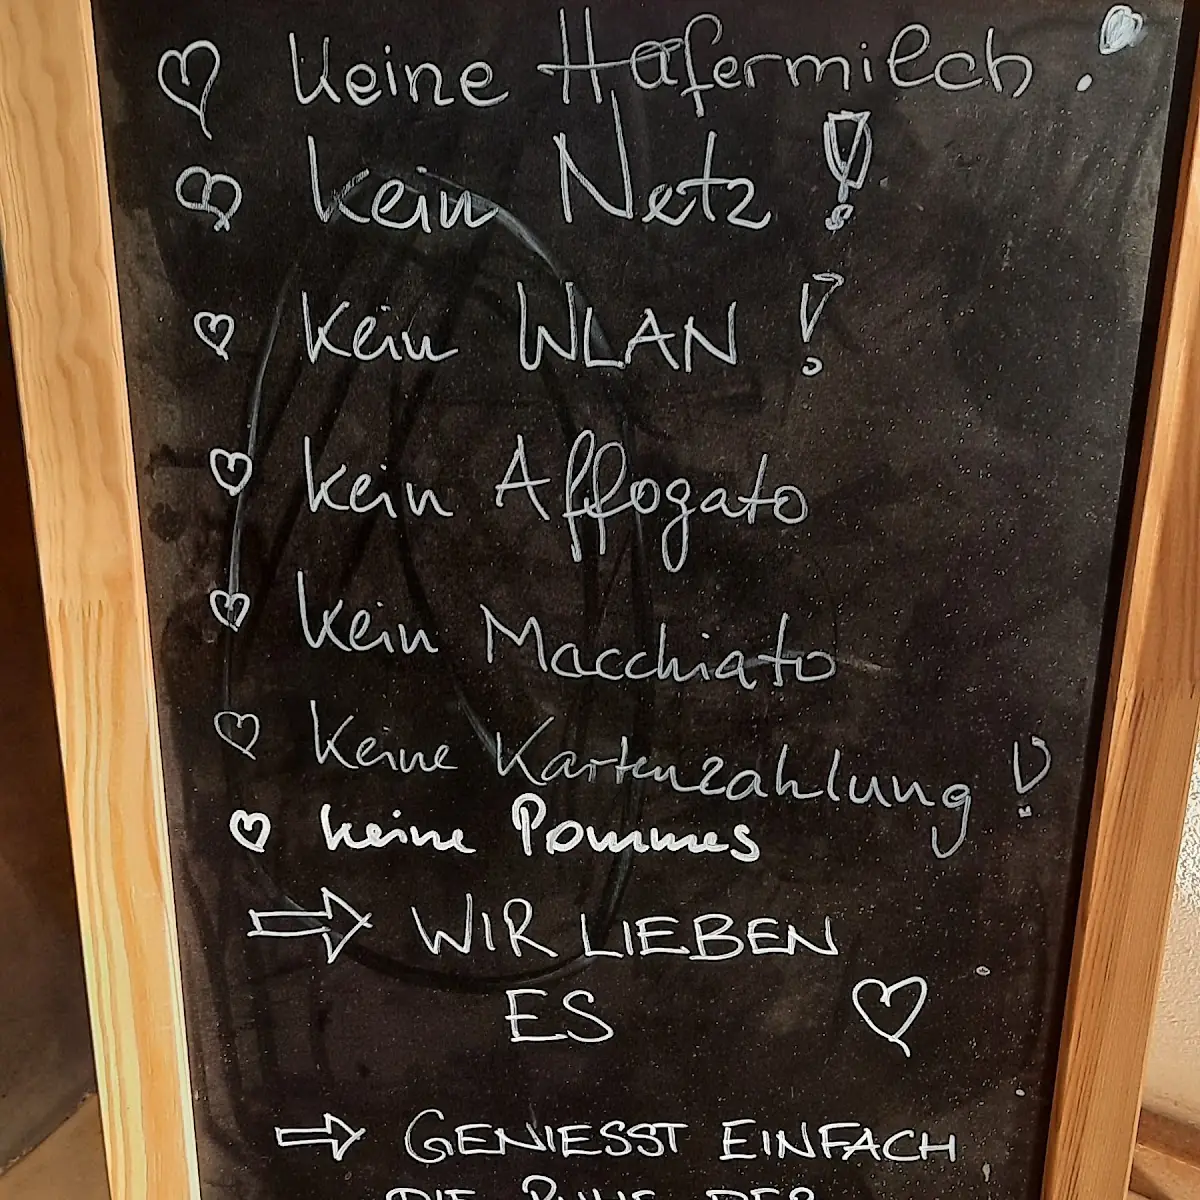 keine Hafermilch!
kein Netz!
kein WLAN!
kein Affogato
kein Macchiato
keine Kartenzahlung!
keine Pommes
WIR LIEBEN
ES
GENIESST EINFACH
DIE RUHE DER